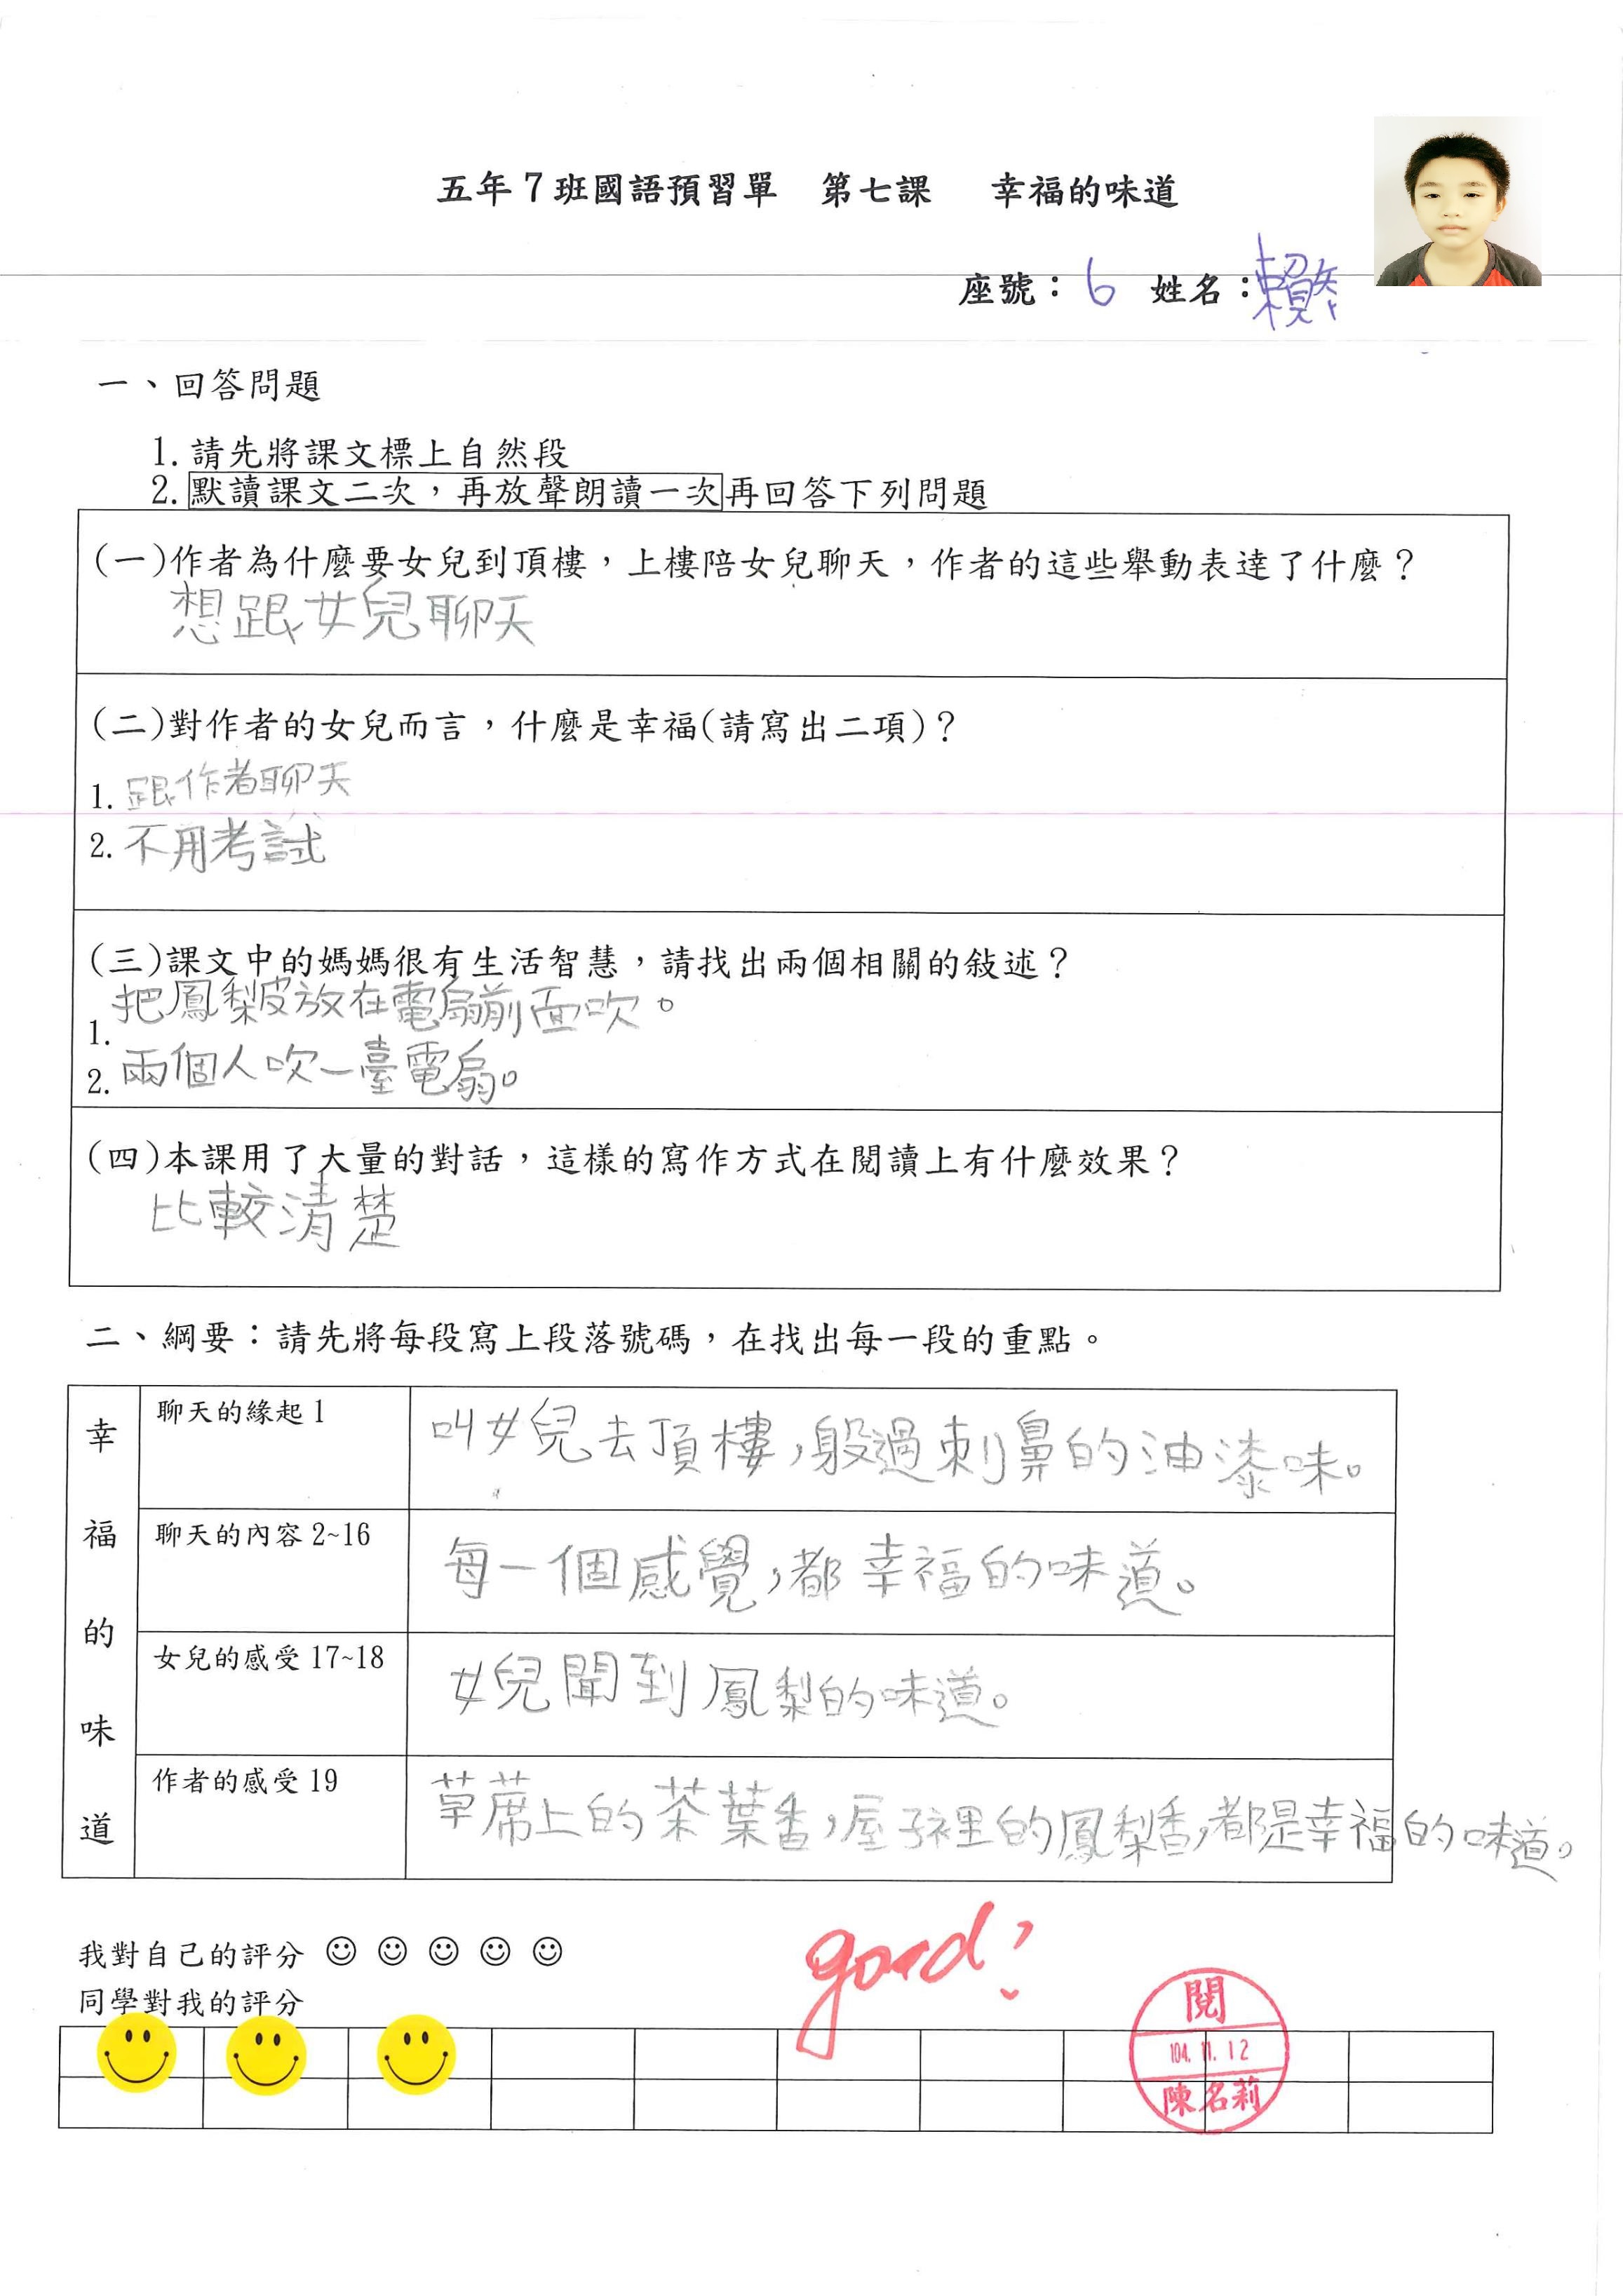 五年7班國語預習單 第七課 幸福的味道
座號：6 姓名：賴
一、回答問題
1. 請先將課文標上自然段
2. 默讀課文二次，再放聲朗讀一次再回答下列問題
(一)作者為什麼要女兒到頂樓，上樓陪女兒聊天，作者的這些舉動表達了什麼？
想跟女兒聊天
(二)對作者的女兒而言，什麼是幸福(請寫出二項)？
1. 跟作者聊天
2. 不用考試
(三)課文中的媽媽很有生活智慧，請找出兩個相關的敍述？
1. 把鳳梨皮放在電扇前面吹。
2. 兩個人吹一臺電扇。
(四)本課用了大量的對話，這樣的寫作方式在閱讀上有什麼效果？
比較清楚
二、綱要：請先將每段寫上段落號碼，在找出每一段的重點。
幸福的味道
聊天的緣起 1
叫女兒去頂樓，躲過刺鼻的油漆味。
聊天的內容 2~16
每一個感覺，都幸福的味道。
女兒的感受 17~18
女兒聞到鳳梨的味道。
作者的感受 19
草蓆上的茶葉香，屋子裡的鳳梨香，都是幸福的味道。
我對自己的評分
同學對我的評分
good!
閱
104.11.12
陳名莉